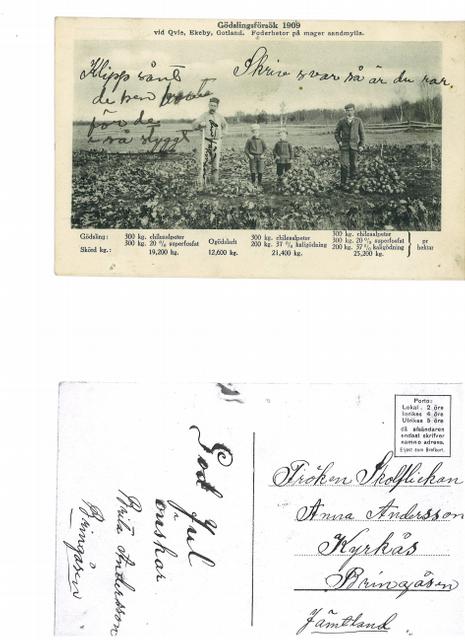 Gödslingsförsök 1909
vid Qvie, Ekeby, Gotland. Foderbetor på mager sandmylla.
Klipp sönt
de
för de
så styggt
Skriv svar så är du rar
Gödsling: 300 kg. chilesalpeter 300 kg. 20 % superfosfat Ogödsladt 300 kg. chilesalpeter 200 kg. 37 % kaligödning 300 kg. chilesalpeter 300 kg. 20 % superfosfat 200 kg. 37 % kaligödning pr hektar
Skörd kg.: 19,200 kg. 12,600 kg. 21,400 kg. 25,200 kg.
Porto:
Lokal. 2 öre
Inrikes 4 öre
Utrikes 5 öre
då afsändaren
endast skrifver
namn o. adress.
Eljest som Brefkort.
God Jul
önskar
Brita Andersson
Bringåsen
Fröken Skolflickan
Anna Andersson
Kyrkås
Bringåsen
Jämtland